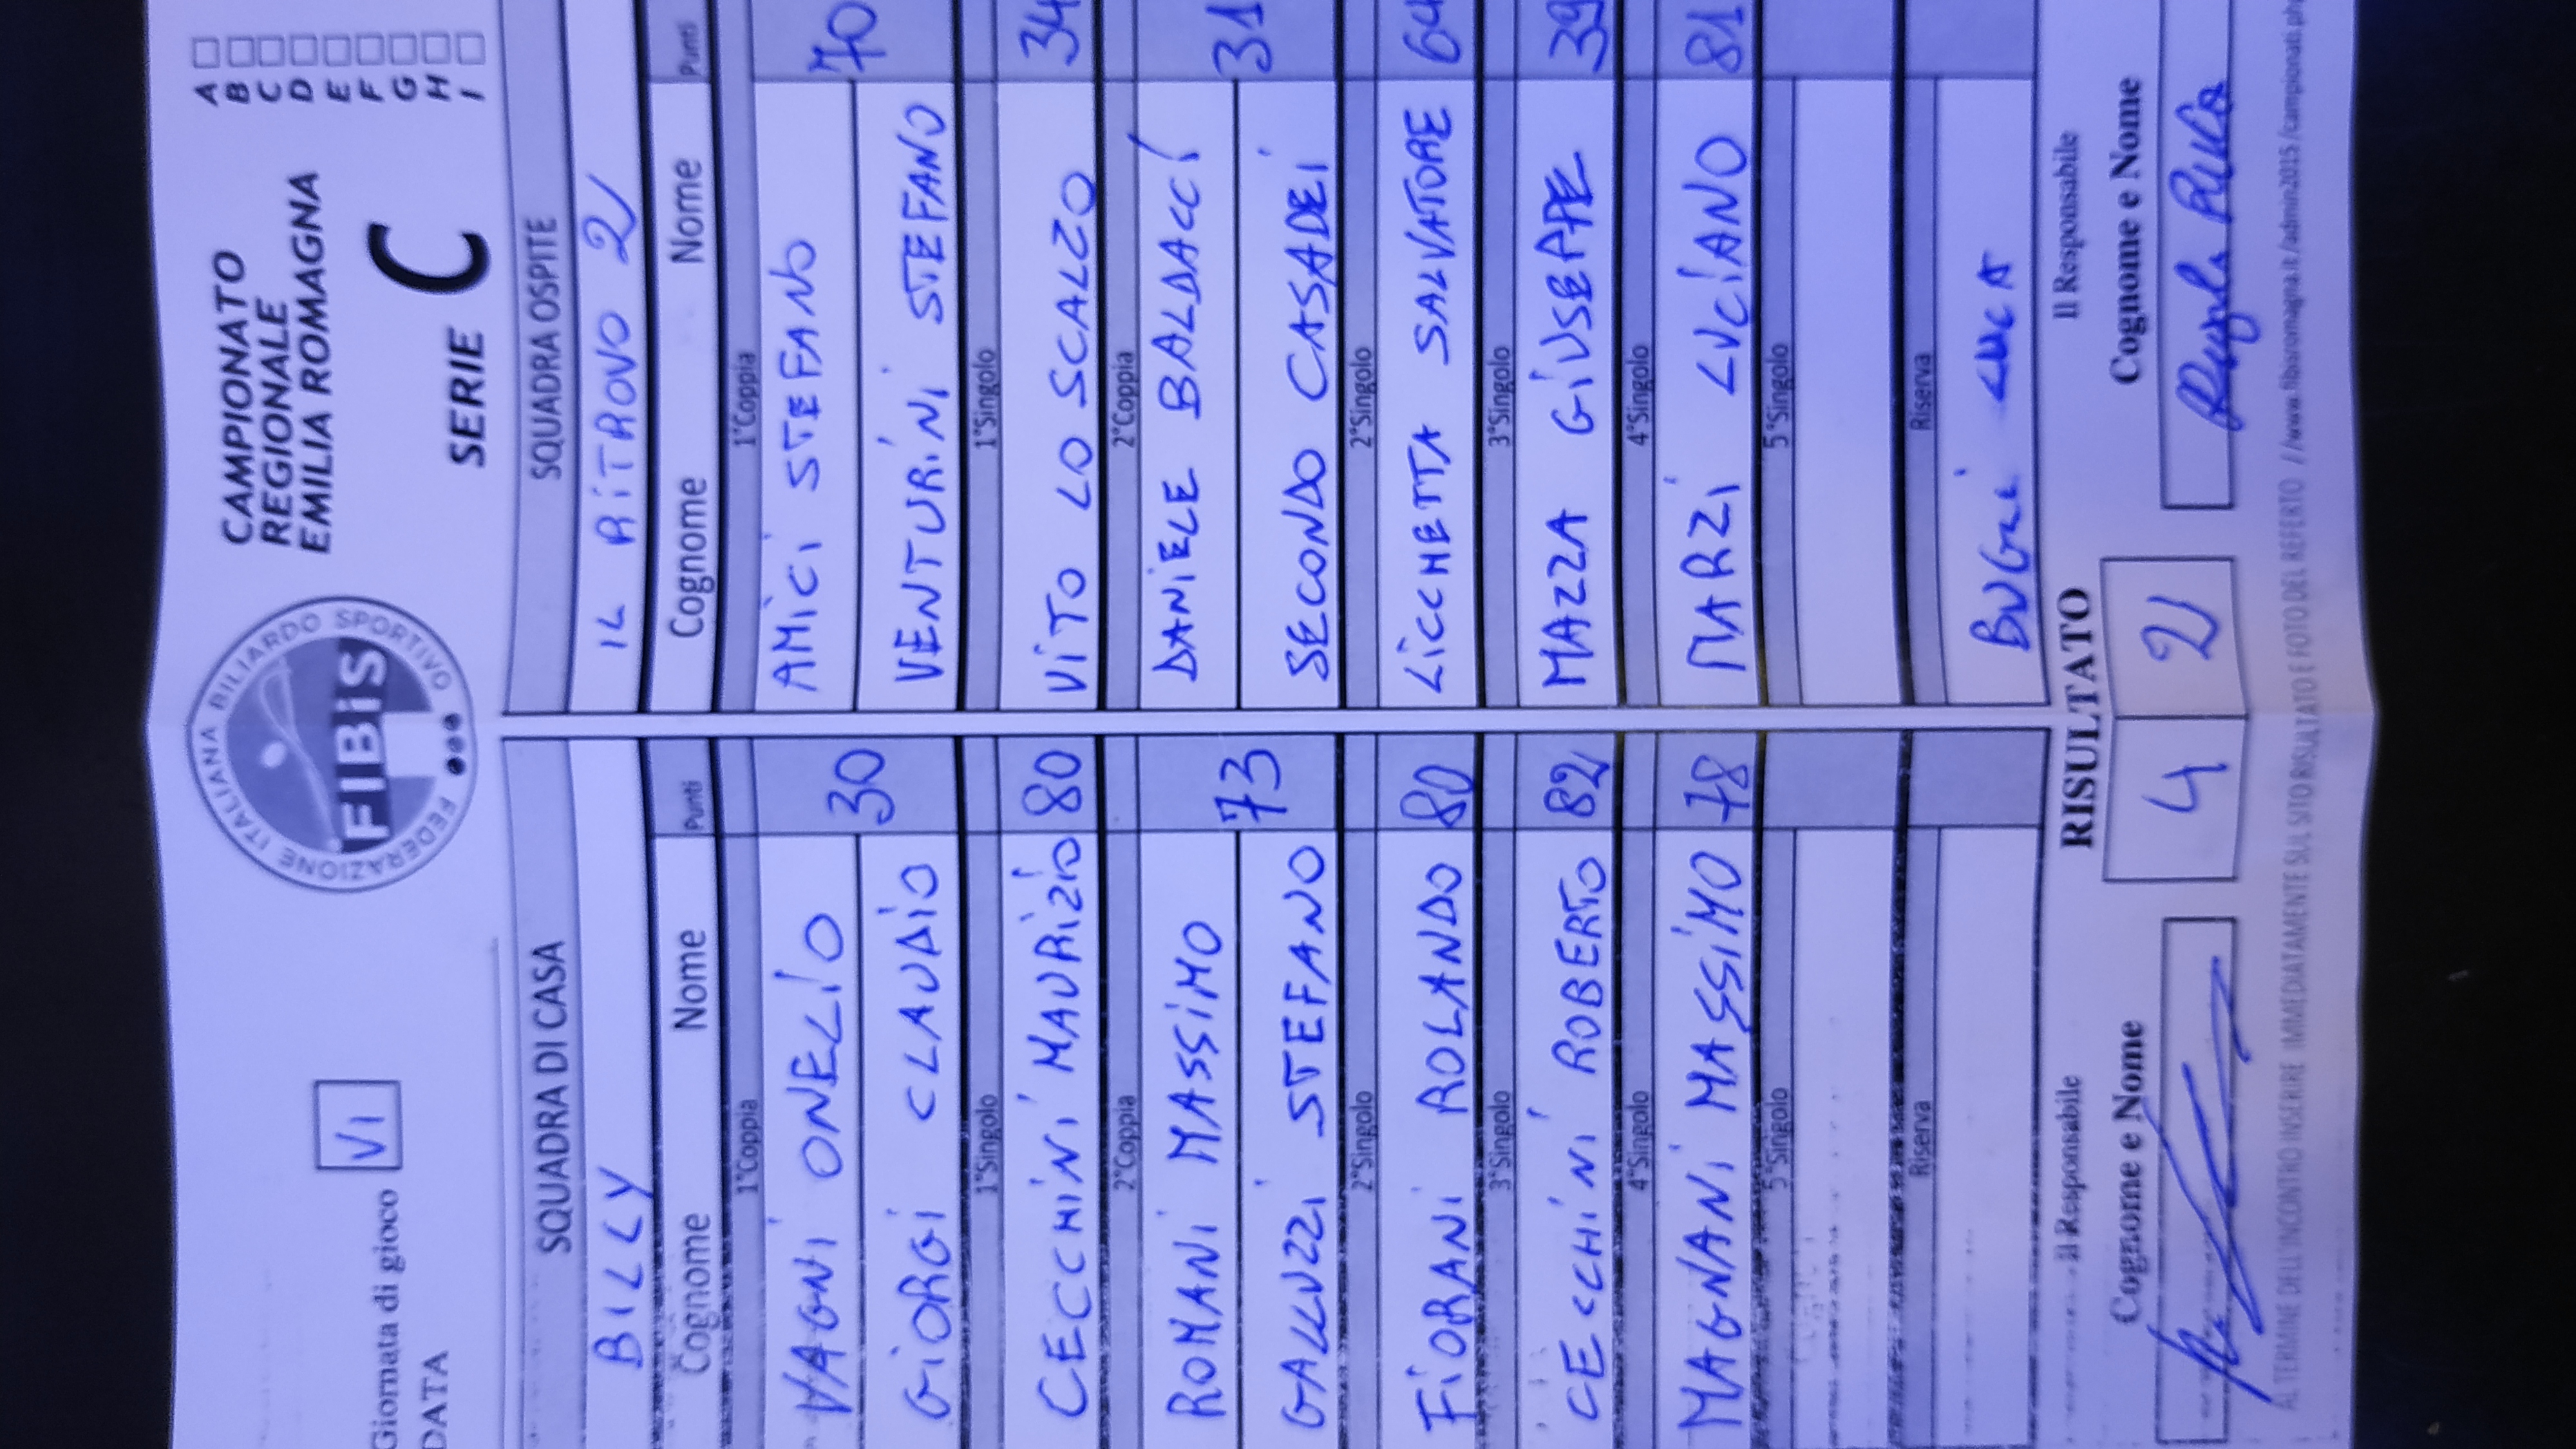 Giornata di gioco VI
DATA
FEDERAZIONE ITALIANA BILIARDO SPORTIVO
FIBiS
CAMPIONATO
REGIONALE
EMILIA ROMAGNA
SERIE C
A
B
C
D
E
F
G
H
I
SQUADRA DI CASA SQUADRA OSPITE
BILLY IL RiTROVO 2
Cognome Nome Punti Cognome Nome Punti
1°Coppia 1°Coppia
VAGNi ONELiO 30 AMiCi STEFANO 70
GiORGi CLAUDiO VENTURiNi STEFANO
1°Singolo 1°Singolo
CECCHiNi MAURiZiO 80 ViTO LO SCALZO 34
2°Coppia 2°Coppia
ROMANi MASSiMO 73 DANiELE BALDACCi 31
GALLUZZi STEFANO SECONDO CASADEi
2°Singolo 2°Singolo
FiORANi ROLANDO 80 LiCCHETTA SALVATORE 64
3°Singolo 3°Singolo
CECCHiNi ROBERTO 82 MAZZA GiUSEPPE 39
4°Singolo 4°Singolo
MAGNANi MASSiMO 78 MARZi LUCiANO 81
5°Singolo 5°Singolo
Riserva Riserva
BUGLi LUCA
il Responsabile RISULTATO Il Responsabile
Cognome e Nome 4 2 Cognome e Nome
AL TERMINE DELL'INCONTRO INSERIRE IMMEDIATAMENTE SUL SITO RISULTATO E FOTO DEL REFERTO //www.fibisromagna.it/admin2015/campionati.ph